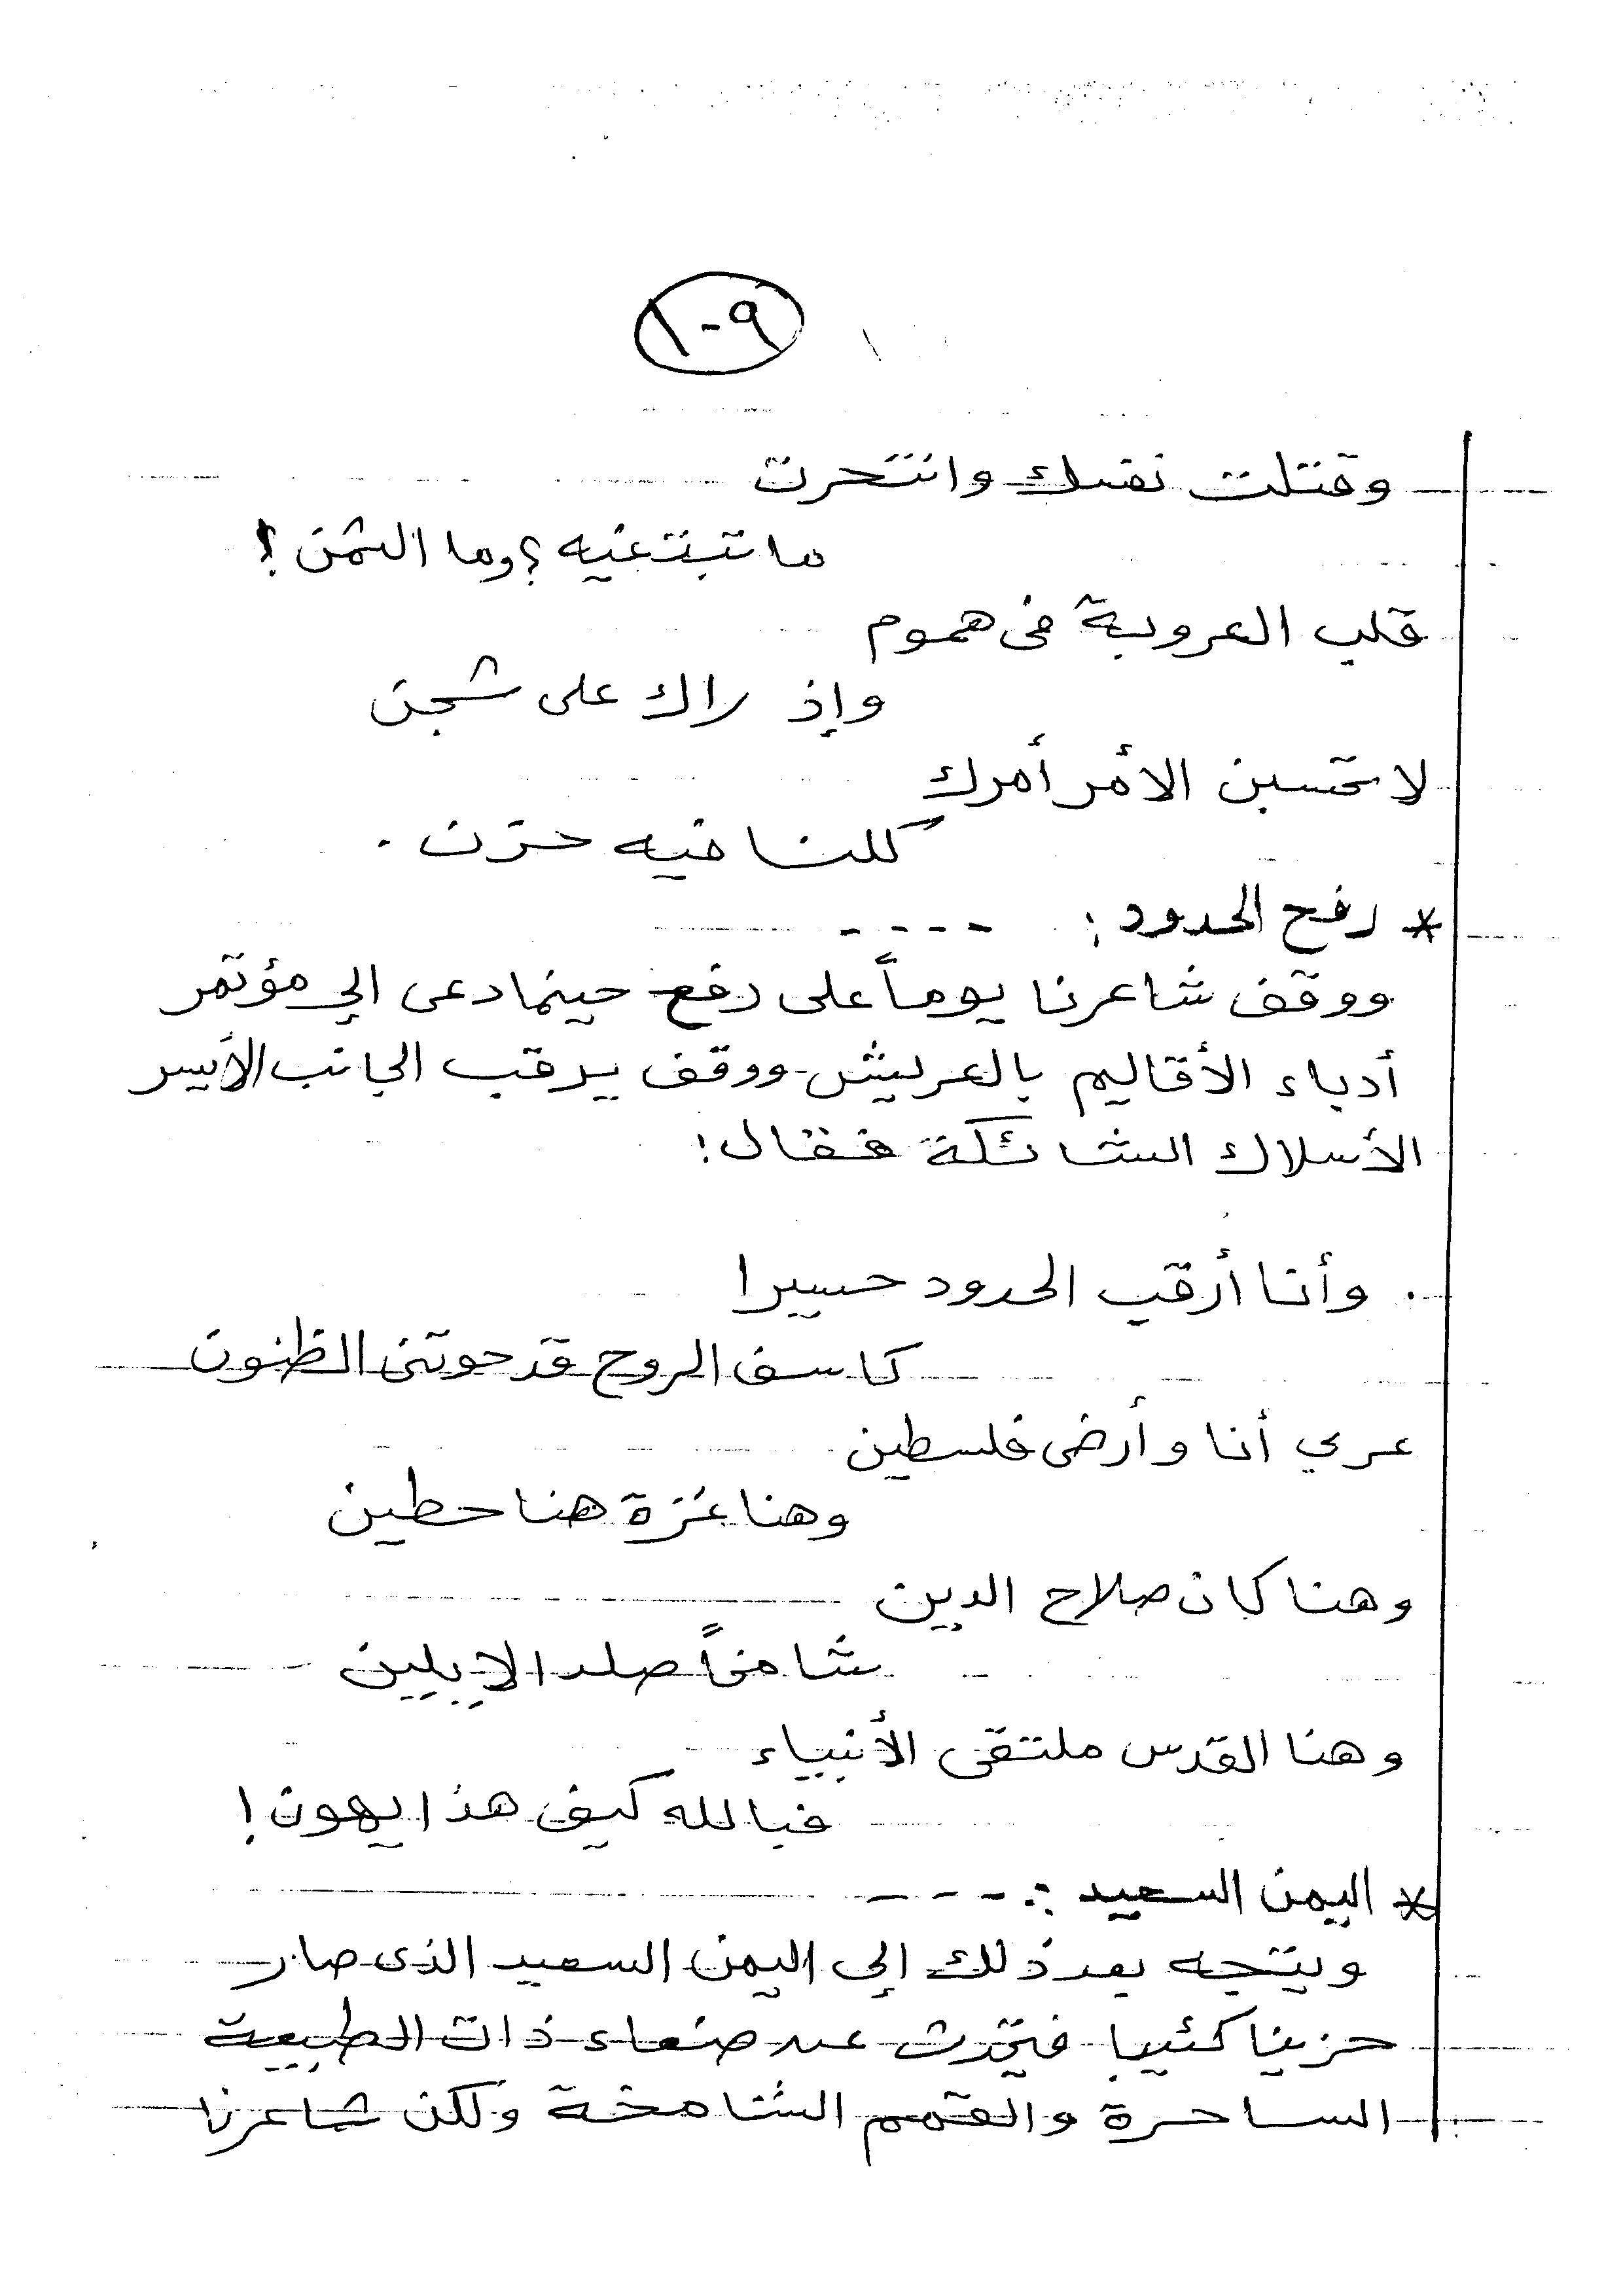 ١٠٩
وقتلت نفسك وانتحرت
ما تبتغيه ؟ وما الثمن ؟!
قلب العروبة فى هموم
وإذ راك على شجن
لا تحسبن الأمر أمرك
كلنا فيه حزن .
* رفح الحدود : - - - -
ووقف شاعرنا يوماً على رفح حينما دعى إلى مؤتمر
أدباء الأقاليم بالعريش - ووقف يرقب الجانب الأيسر
الأسلاك الشائكة فقال :
. وأنا أرقب الحدود حسيرا
كاسف الروح قد حوتنى الظنون
عربي أنا وأرضى فلسطين
وهنا غزة هنا حطين
وهنا كان صلاح الدين
شامخاً صلد الإيلين
وهنا القدس ملتقى الأنبياء
فبالله كيف هذا يهون !
* اليمن السعيد : - - - -
ويتجه بعد ذلك إلى اليمن السعيد الذى صار
حزينا كئيبا فيتحدث عن صنعاء ذات الطبيعة
الساحرة والقمم الشامخة ولكن شاعرنا